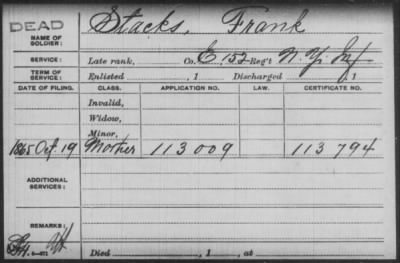 DEAD
NAME OF SOLDIER: Stacks, Frank
SERVICE: Late rank, Co. E, 152 Reg't N.Y. Inf
TERM OF SERVICE: Enlisted , 1 Discharged , 1
DATE OF FILING. CLASS. APPLICATION NO. LAW. CERTIFICATE NO.
Invalid,
Widow,
Minor,
1865 Oct. 19 Mother 113009 113794
ADDITIONAL SERVICES:
REMARKS:
Died , 1 , at